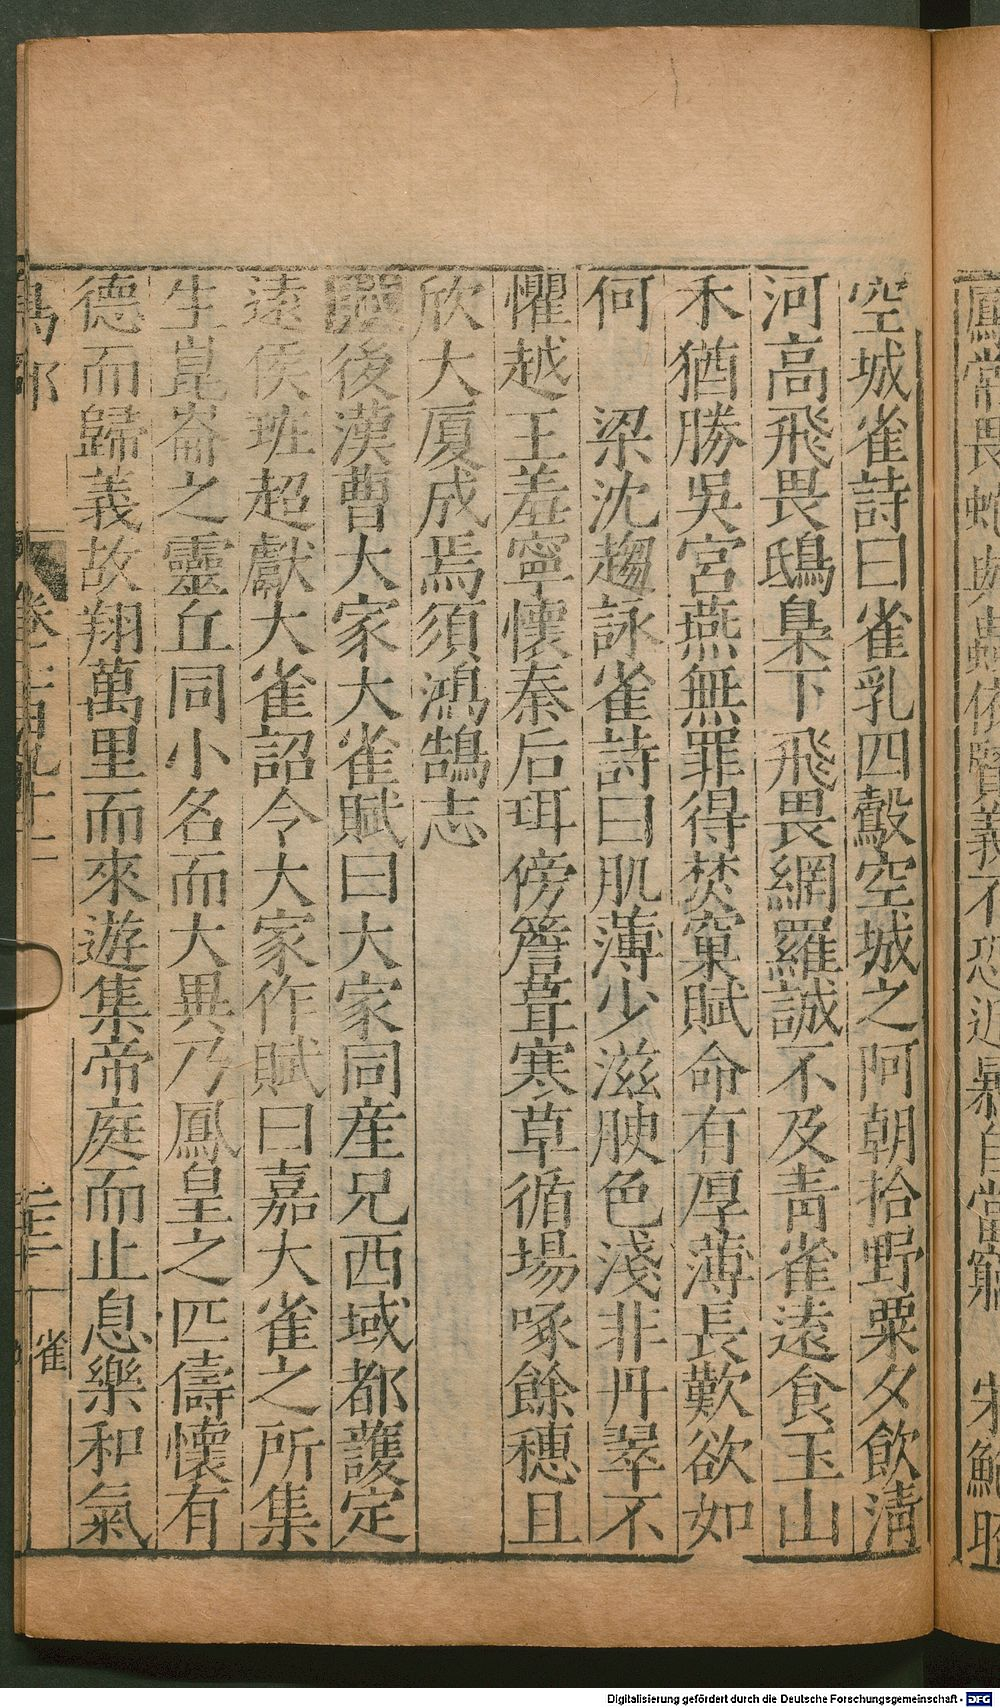 空城雀詩曰雀乳四鷇空城之阿朝拾野粟夕飲清
河高飛畏鴟梟下飛畏網羅誠不及青雀遠食玉山
禾猶勝吳宮燕無罪得焚窠賦命有厚薄長歎欲如
何　梁沈趨詠雀詩曰肌薄少滋腴色淺非丹翠不
懼越王羞寧懷秦后珥傍簷葺寒草循場啄餘穗且
欣大厦成焉須鴻鵠志
後漢曹大家大雀賦曰大家同産兄西域都護定
遠侯班超獻大雀詔令大家作賦曰嘉大雀之所集
生崑崙之靈丘同小名而大異乃鳳皇之匹儔懷有
德而歸義故翔萬里而來遊集帝庭而止息樂和氣
鳥部
雀
Digitalisierung gefördert durch die Deutsche Forschungsgemeinschaft - DFG